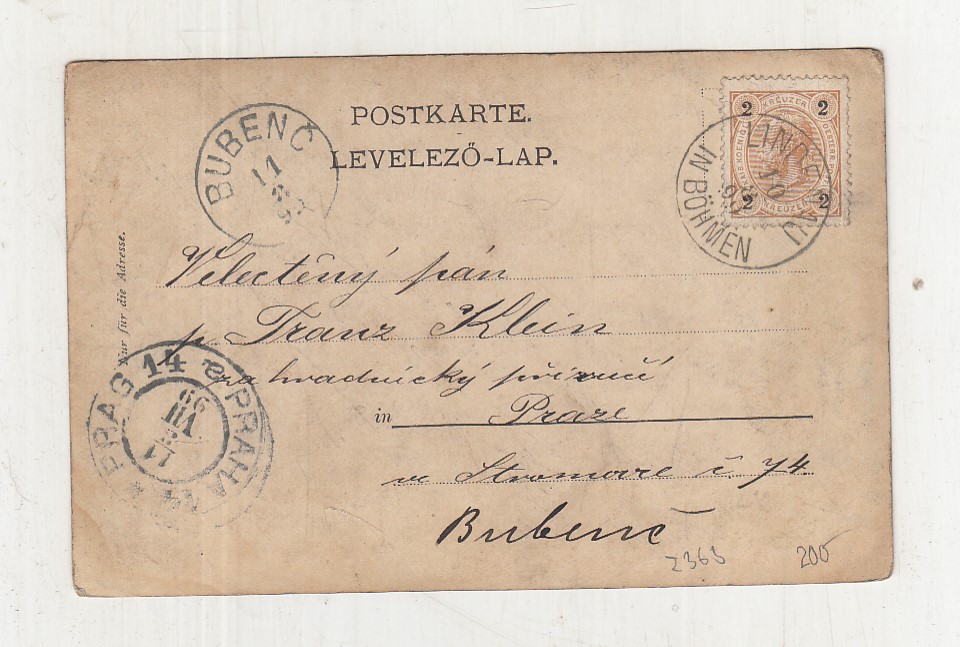 POSTKARTE.
LEVELEZŐ-LAP.
BUBENČ
11
8
2 KREUZER 2
2 KREUZER 2
IN BÖHMEN
10
Nur für die Adresse.
Velectěný pán
p. Franz Klein
zahradnický příručí
in Praze
ve Stromovce č. 74.
Bubenč
PRAG 14 PRAHA 14
11
VII
99
2363
200